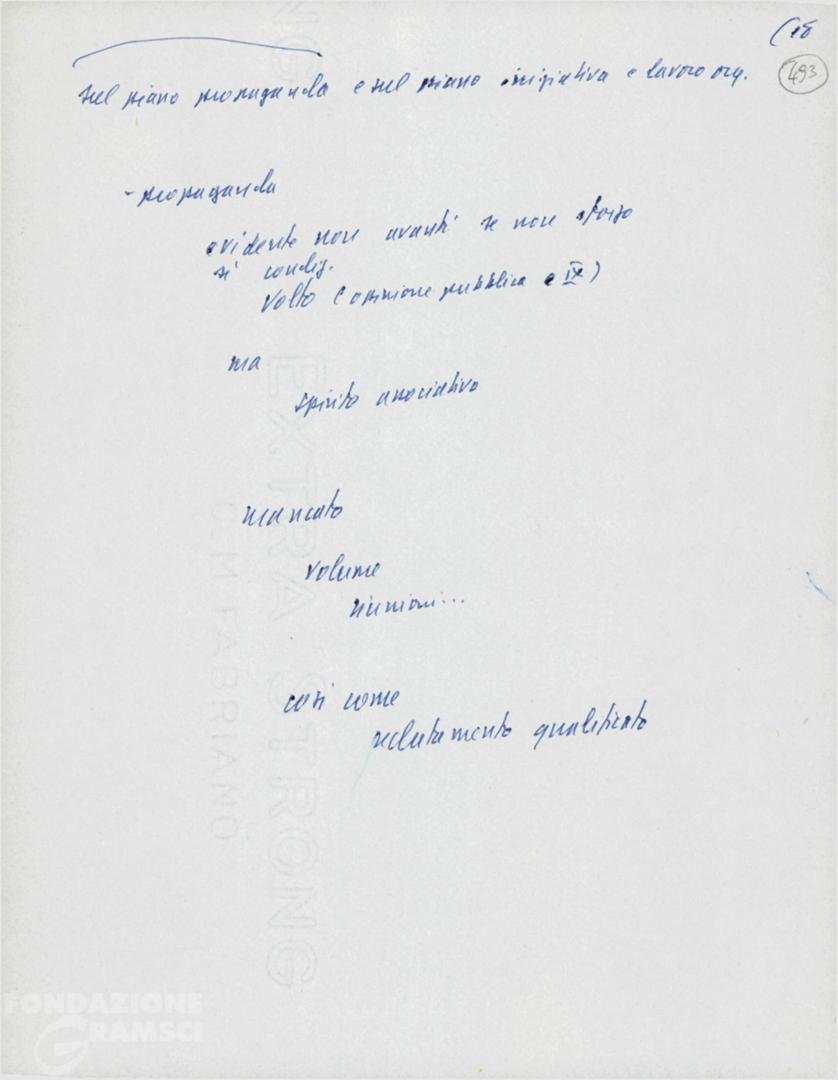 (18
493
sul piano propaganda e sul piano iniziativa e lavoro org.
- propaganda
evidente non avanti se non sforzo
si condiz.
volto (opinione pubblica e IX)
ma
spirito associativo
mancato
volume
riunioni...
così come
reclutamento qualificato
EXTRA STRONG
C.M. FABRIANO
FONDAZIONE
GRAMSCI